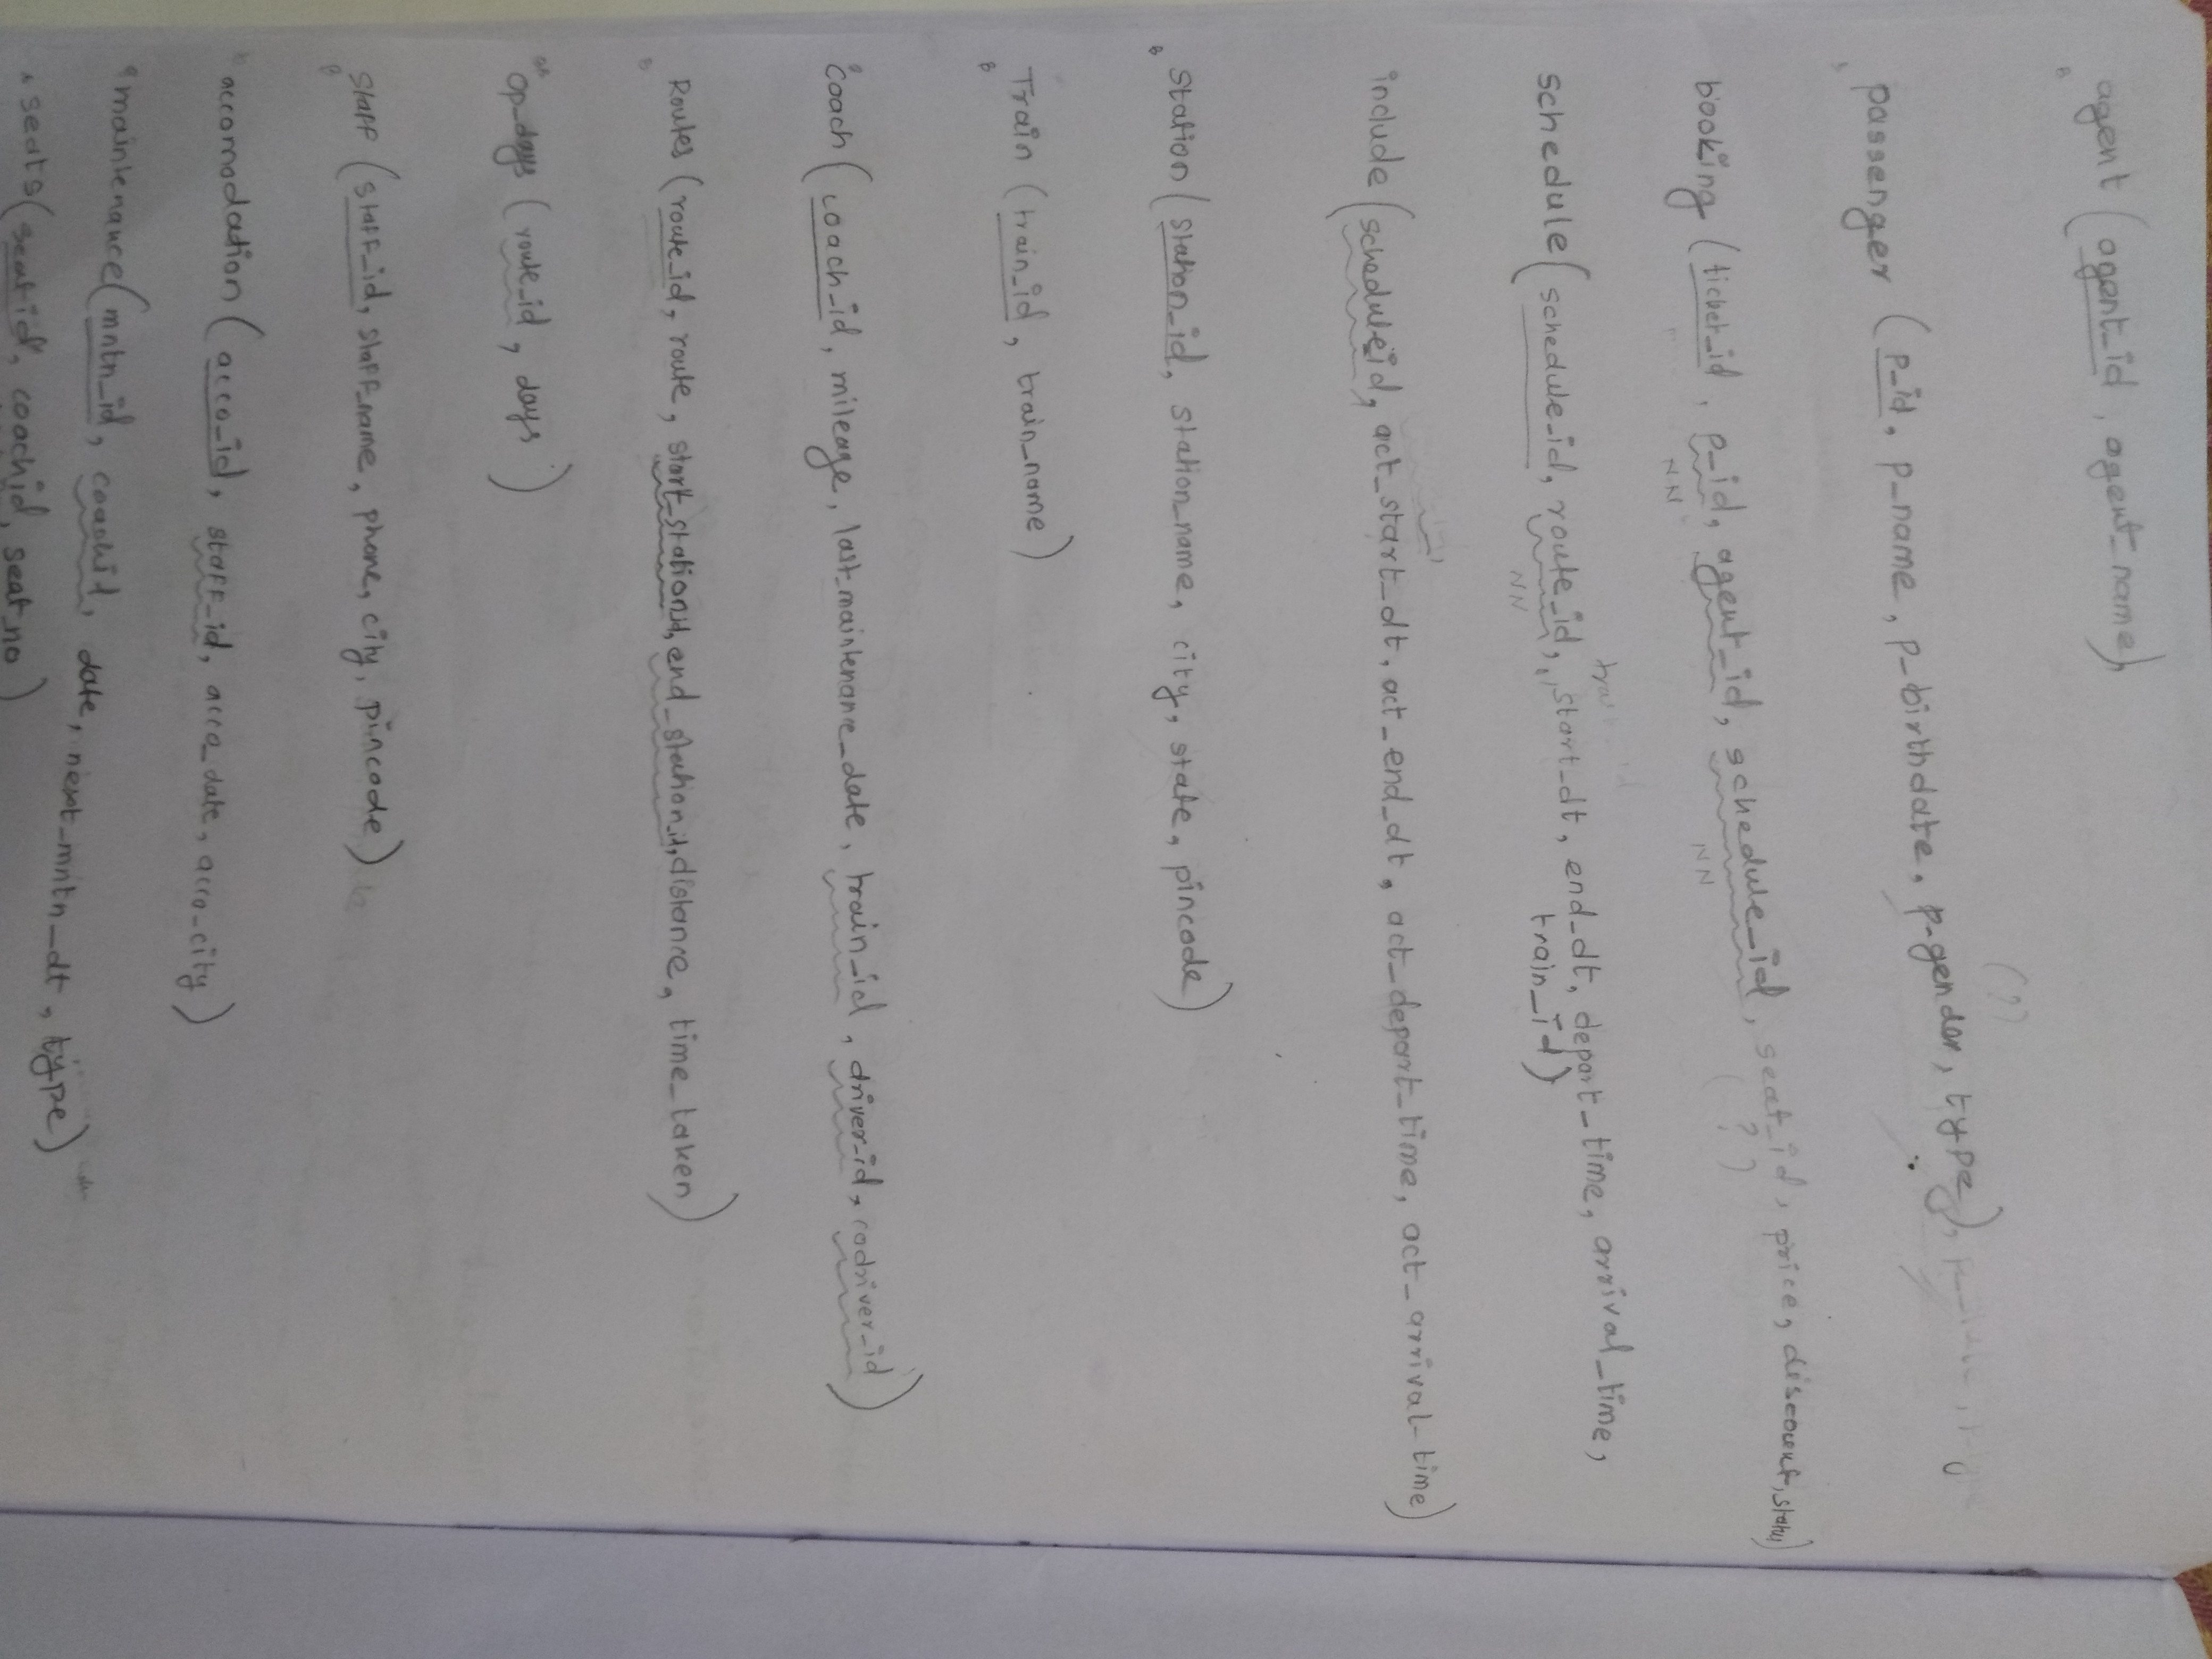 agent (agent_id, agent_name),
B
(?)
passenger (p_id, p_name, p-birthdate, p-gender, type),
booking (ticket_id, p_id, agent_id, schedule_id, seat_id, price, discount, status)
NN NN (?)
schedule (schedule_id, route_id, start_dt, end_dt, depart_time, arrival_time,
train_id)
NN
include (scheduleid, act_start_dt, act_end_dt, act_depart_time, act_arrival_time)
Station (station_id, station_name, city, state, pincode)
B
Train (train_id, train_name)
B
Coach (coach_id, mileage, last_maintenance_date, train_id, driver_id, codriver_id)
Routes (route_id, route, start_station_id, end_station_id, distance, time_taken)
B
Op_days (route_id, days)
Staff (staff_id, staff_name, phone, city, pincode)
B
accomodation (acco_id, staff_id, acco_date, acco_city)
maintenance (mntn_id, coachid, date, next_mntn_dt, type)
seats (seatid, coachid, seat_no)